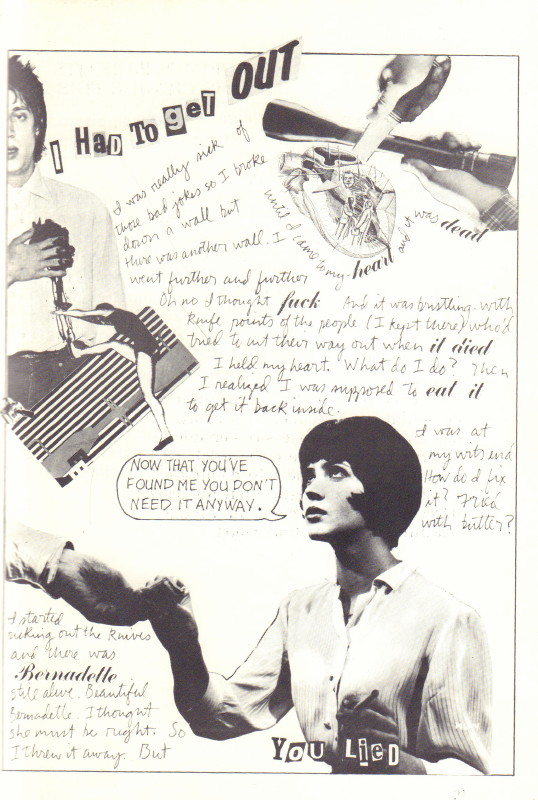 I HaD To get OUT
I was really sick of
those bad jokes so I broke
down a wall but
there was another wall. I
went further and further
until I came to my heart and it was dead
Oh no I thought fuck And it was bristling with
knife points of the people (I kept there) who'd
tried to cut their way out when it died
I held my heart. What do I do? Then
I realized I was supposed to eat it
to get it back inside.
I was at
my wits end
How do I fix
it? Fried
with butter?
NOW THAT YOU'VE
FOUND ME YOU DON'T
NEED IT ANYWAY.
I started
picking out the knives
and there was
Bernadette
still alive. Beautiful
Bernadette. I thought
she must be right. So
I threw it away. But
YOU LiED